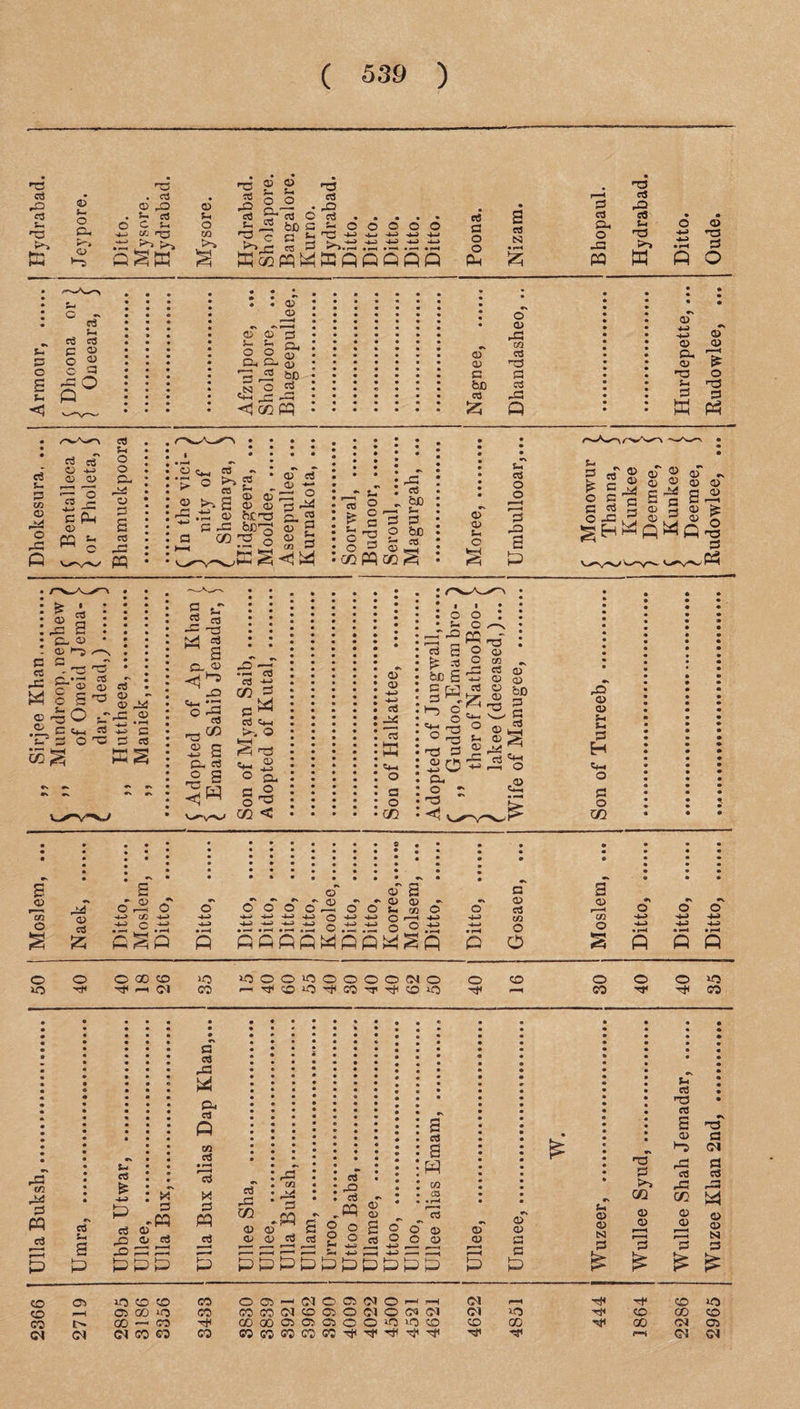 ( 539 )
2366 Ulla Buksh, ... 50 Moslem, ... ,, Sirjee Khan ... Dhokesura, ... Armour, ... Hydrabad.
2719 Umra, ... 40 Naek, ... { ,, Mundroop. nephew { Bentalleca } { Dhoona or } Jeypore.
of Omeid Jema- or Pholeta, Oneeara,
dar, dead,) ...
2895 Ubba Utwar, ... 40 Ditto, ... ,, Huttheea, ... Bhamuckpoora ... Ditto.
3186 Ullee, ... 18 Moslem, ... ,, Maniek, ... Mysore.
3356 Ulla Bux, ... 26 Ditto, ... Hydrabad.
3433 Ulla Bux alias Dap Khan, ... 35 Ditto, ... { Adopted of Ap Khan { In the vici- } ... Mysore.
Emam Sahib Jemadar, nity of
Shemaya,
3830 Ullee Sha, ... 15 Ditto, ... Son of Myan Saib, ... Hidggeera, ... Afzulpore, ... Hydrabad.
3839 Ullee, ... 40 Ditto, ... Adopted of Kutal, ... Mooldee, ... Sholapore, ... Sholapore.
3921 Ulla Buksh, ... 60 Ditto, ... Aseepullee, ... Bhageepullee,. Bangalore.
3962 Ullam, ... 55 Ditto, ... Kurnakota, ... Kurno.
3990 Urroo, ... 40 Koolee, ... Hydrabad.
4009 Uttoo Baba, ... 30 Ditto, ... Soorwal, ... Ditto.
4022 Ullamee, ... 40 Ditto, ... Budnoor, ... Ditto.
4500 Uttoo, ... 40 Kooree, ... Son of Halkattee, ... Seroul, ... Ditto.
4521 Ulloo, ... 62 Moslem, ... Magurgah, ... Ditto.
4621 Ullee alias Emam, ... 50 Ditto, ... Adopted of Jungwall, ... Ditto.
4622 Ullee, ... 40 Ditto, ... { ,, Guddoo, Emam bro- Moree, ... Nagnee, ... Poona.
ther of NathooBoo-
lakee (deceased,) ...
4851 Unnee, ... 16 Gosaen, ... Wife of Manugee, ... Umbullooar, ... Dhandasheo, .. Nizam.
W.
444 Wuzeer, ... 30 Moslem, ... Son of Turreeb, ... { Monowur ... Bhopaul.
Thanna,
1864 Wullee Syud, ... 40 Ditto, ... { Kunkee ... Hydrabad.
Deemee,
2286 Wullee Shah Jemadar, ... 40 Ditto, ... { Kunkee Hurdepette, ... Ditto.
Deemee,
2965 Wuzee Khan 2nd, ... 35 Ditto, ... Rudowlee, ... Rudowlee, ... Oude.